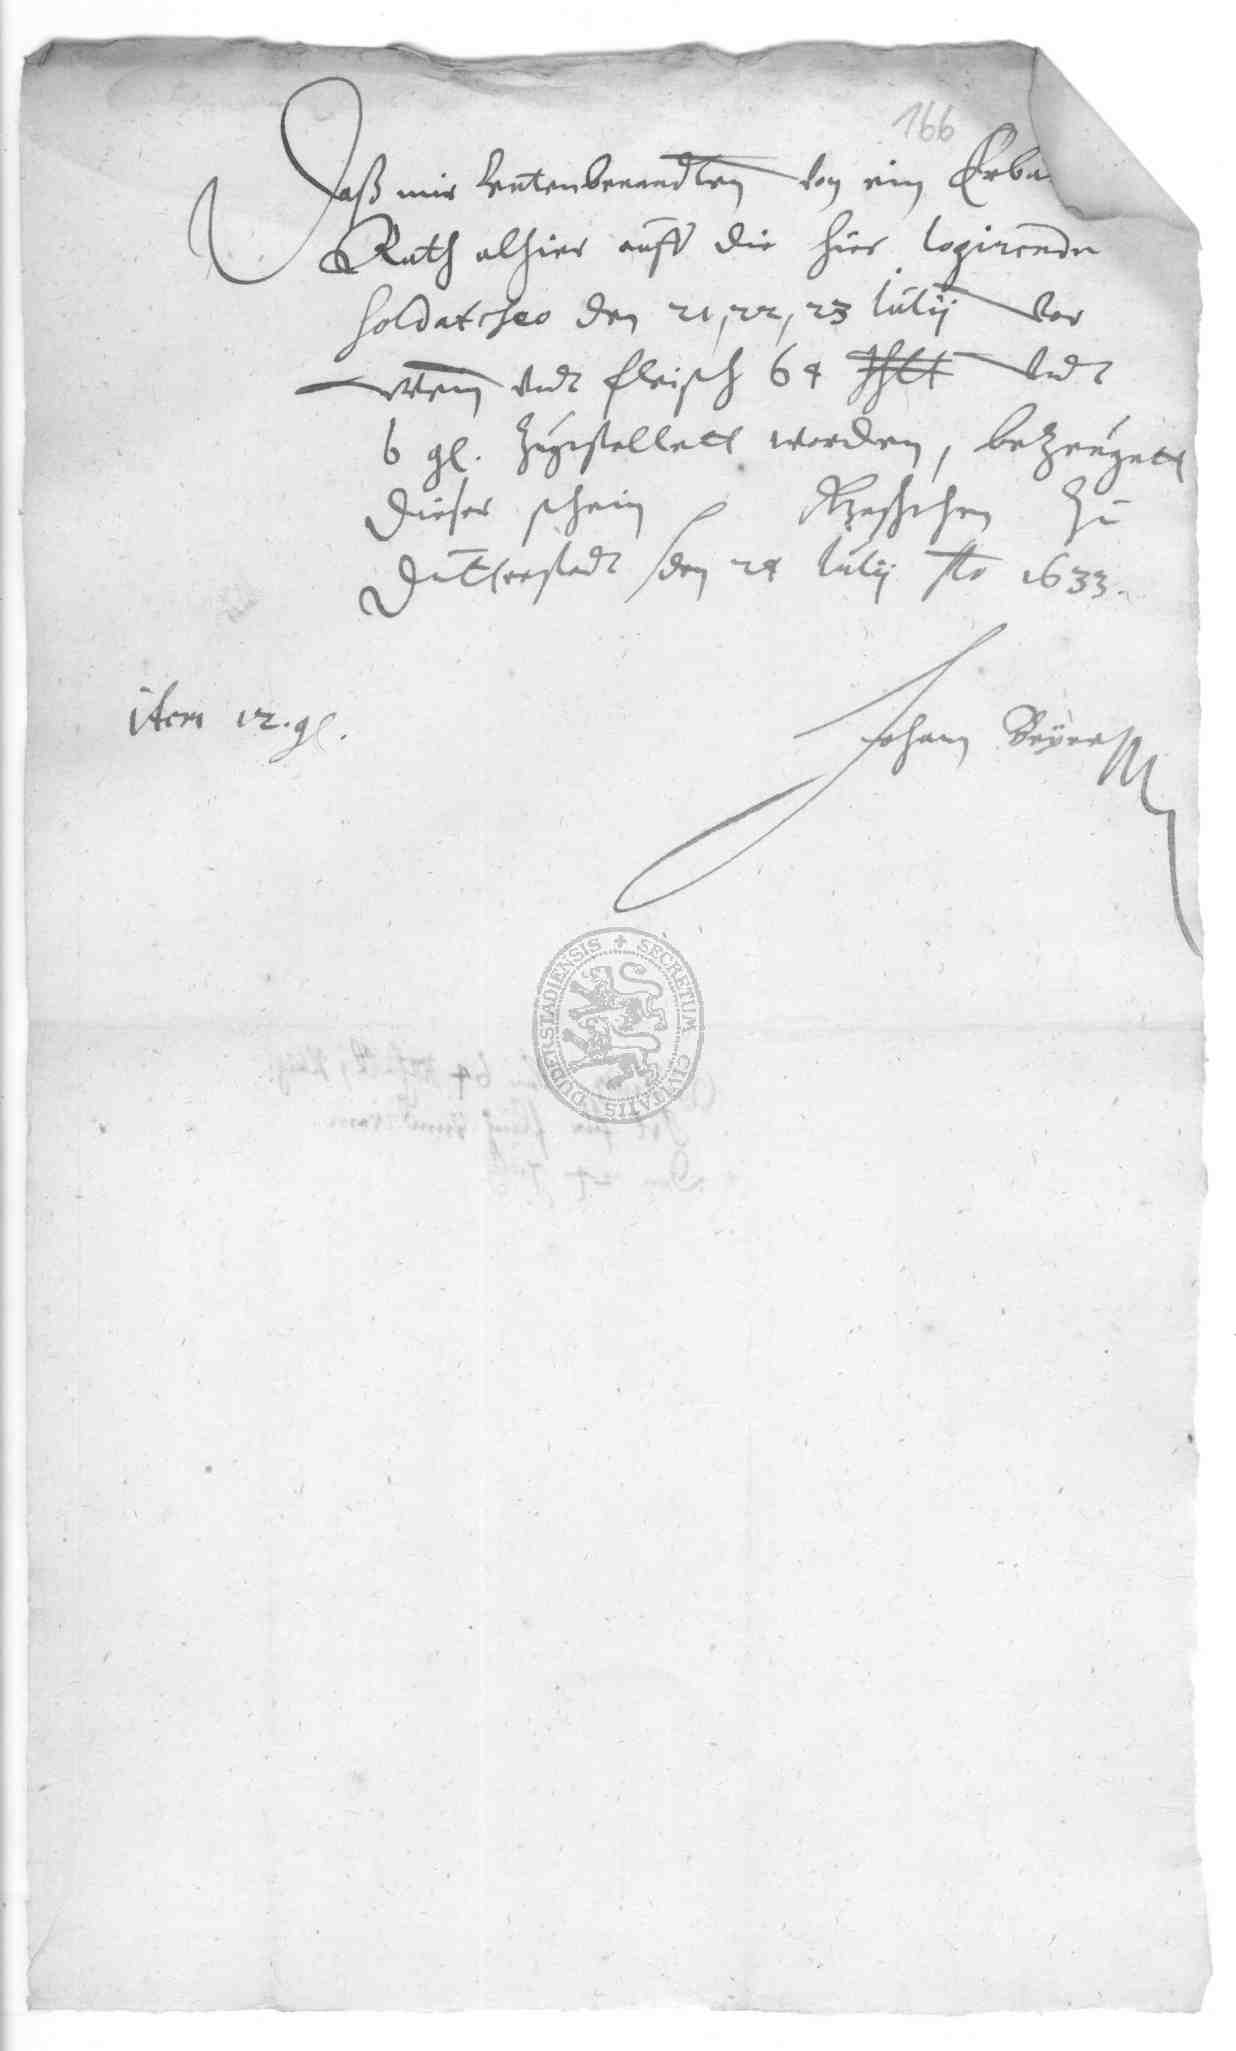 166
Daß mir Entenbenandten von ein Erba
Rath alhier auff die hier logirende
soldatesco den 21, 22, 23 Iulij vor
wein vndt fleisch 64 thlr vndt
6 gl. zugestellett worden, bezeugett
dieser schein Geschehen zu
Dutterstadt den 24 Iulij Ao 1633.
item 12. gl.
Johann Beÿer
SECRETUM CIVITATIS DUDERSTADIENSIS
64